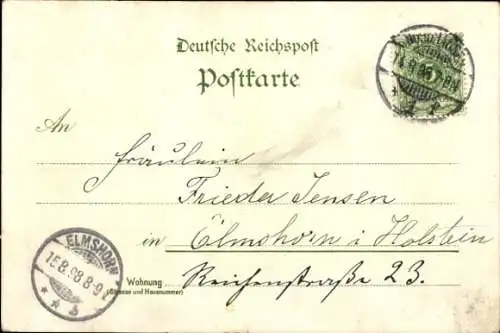 Deutsche Reichspost
Postkarte
An
Fräulein
Frieda Jensen
in Elmshorn i Holstein
Wohnung Reichenstraße 23.
(Strasse und Hausnummer)
ELMSHORN
15.8.98.8-9V